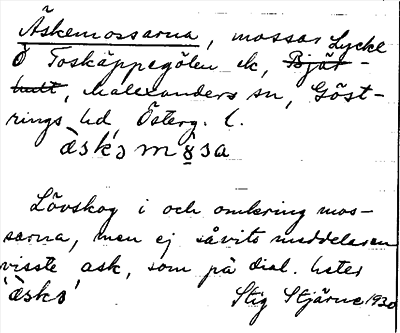 Äskemossarna, mossar Lycke
o Toskäppegölen ek, Bjät-
hult, Malexanders sn, Göst-
rings hd, Österg. l.
Lövskog i och omkring mos-
sarna, men ej såvitt meddelaren
visste ask, som på dial. heter
Stig Stjärne 1930